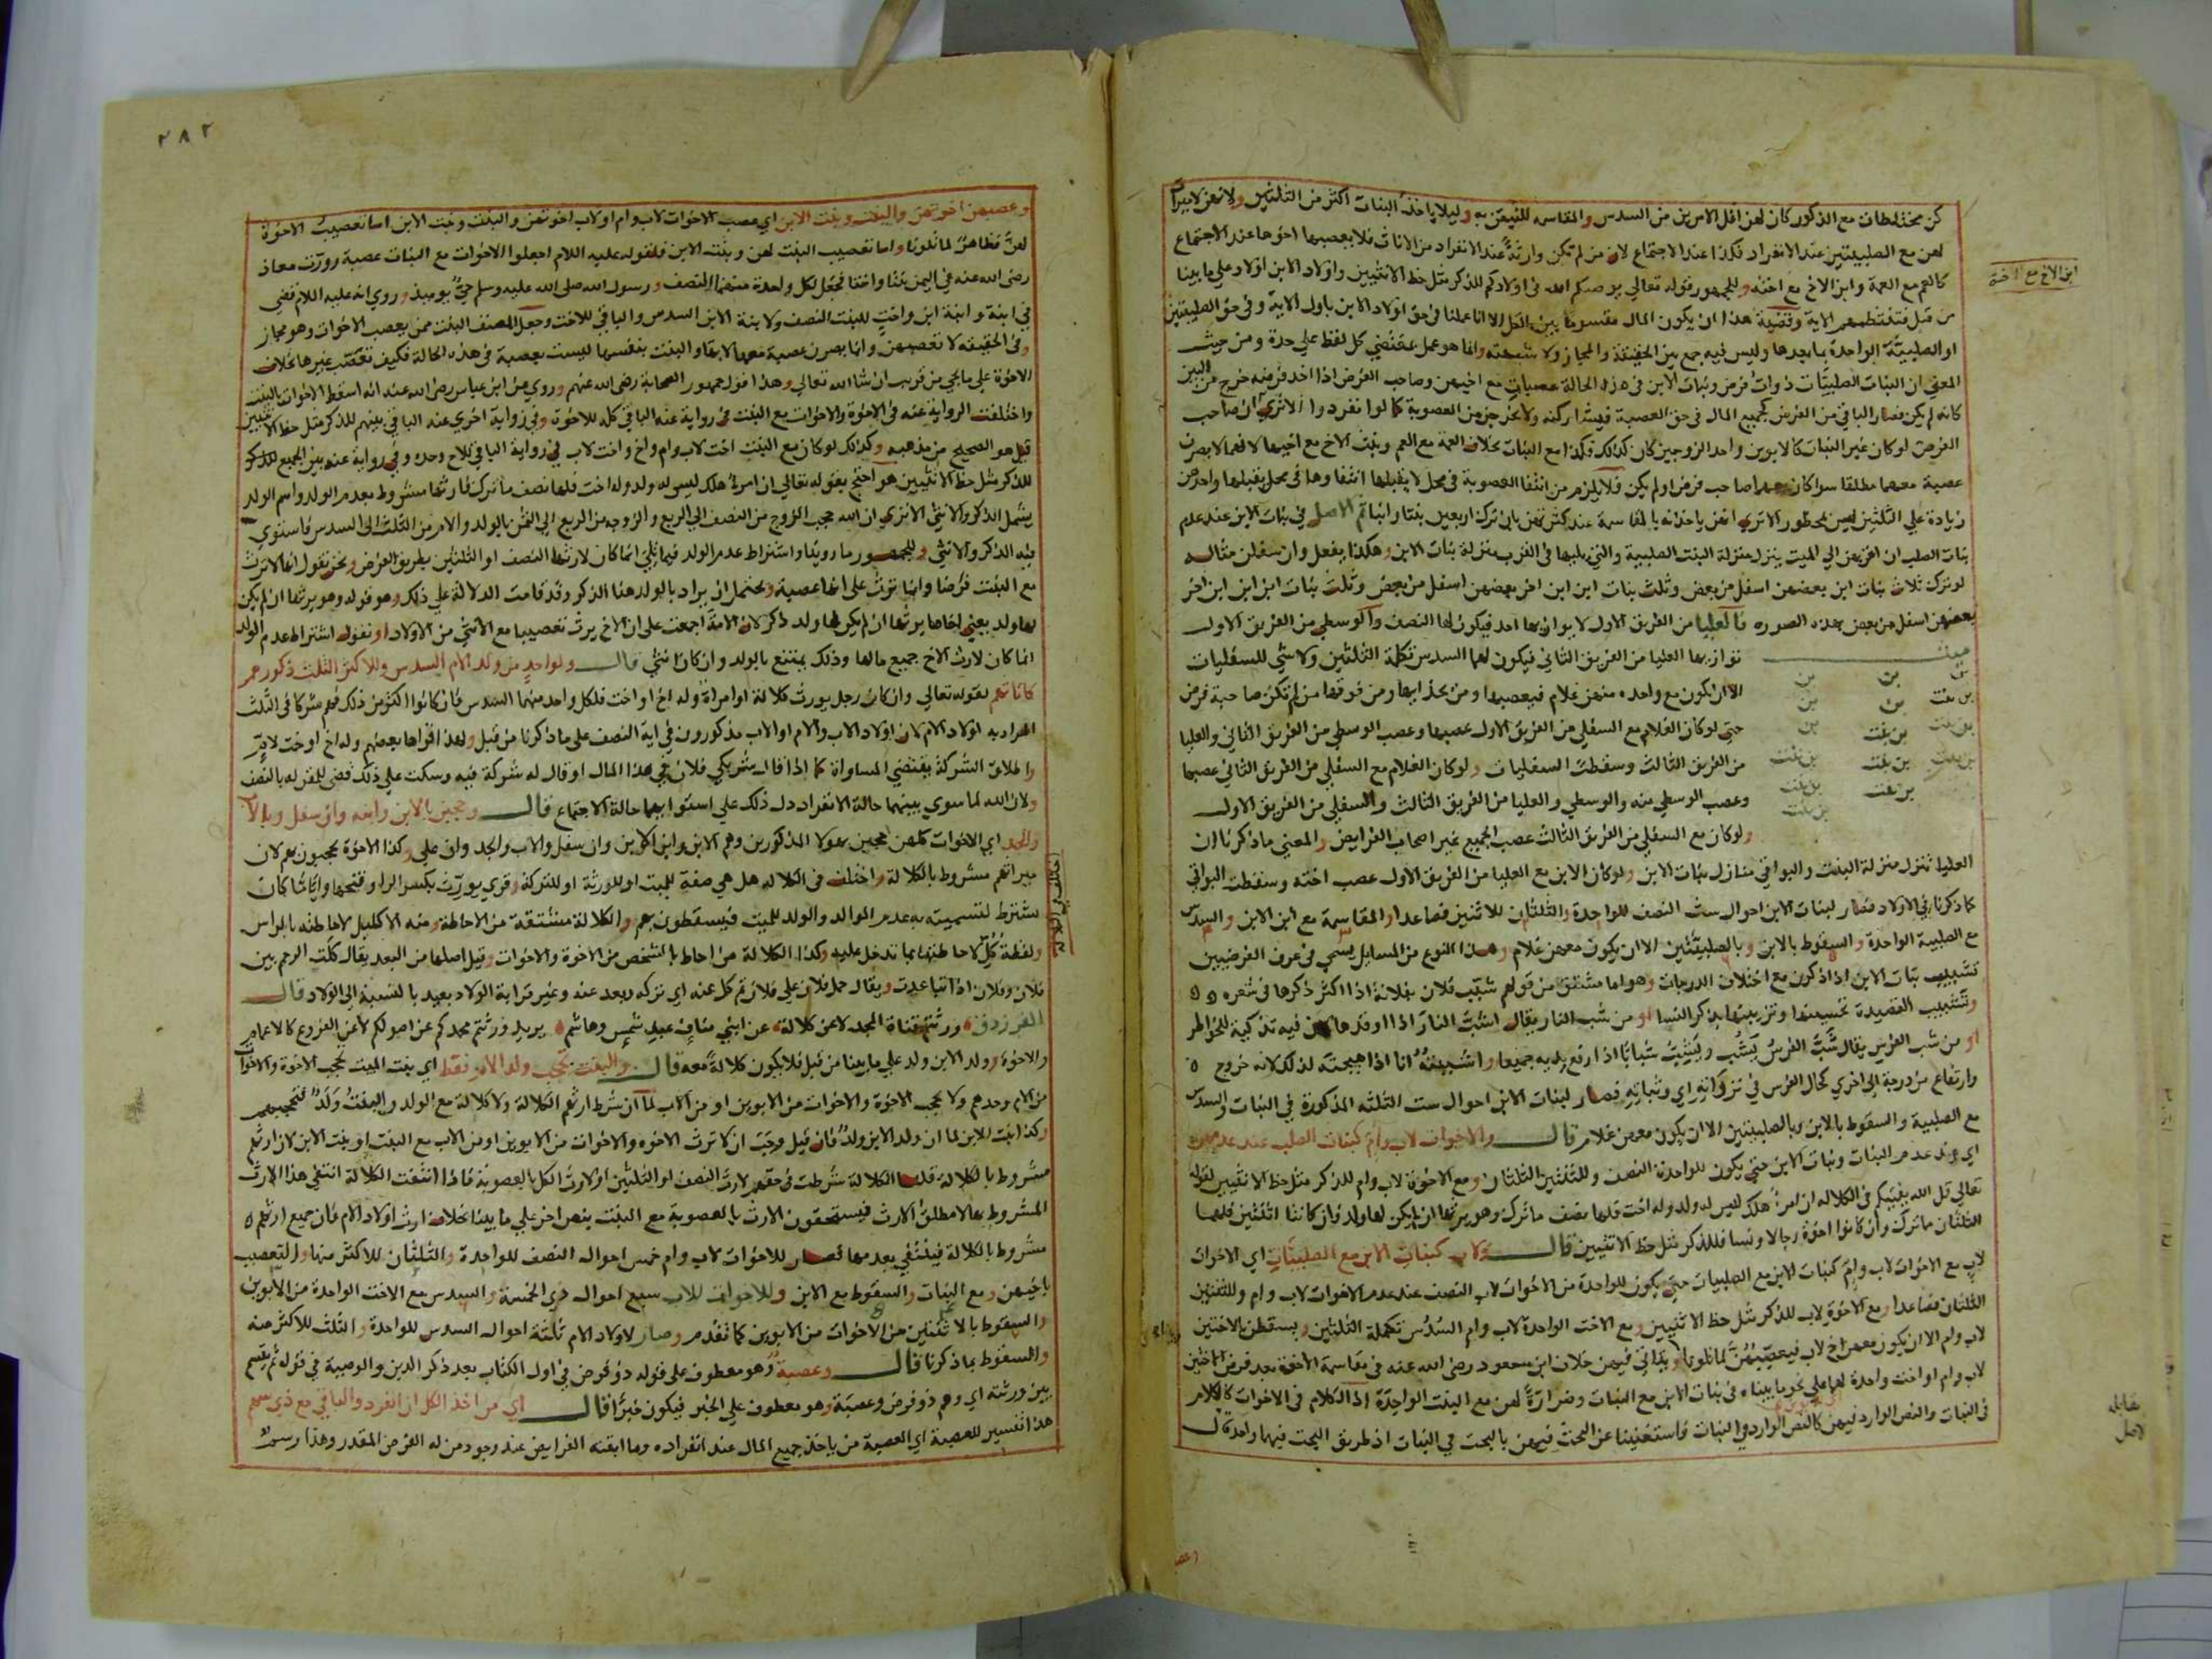 كن مختلطات مع الذكور كان لهن اقل الامرين من السدس والمقاسمة للتيقن به وليلا ياخذ البنات اكثر من الثلثين ولانهن لا ميراث
لهن مع الصلبيتين عند الانفراد فكذا عند الاجتماع لان من لم تكن وارثة عند الانفراد من الاناث فلا يعصبها اخوها عند الاجتماع
كالعم مع العمة وابن الاخ مع اخته وللجمهور قوله تعالي يوصيكم الله في اولادكم للذكر مثل حظ الانثيين واولاد الابن اولاد علي ما بينا
من قبل فتنتظمهم الاية وقضية هذا ان يكون المال مقسوما بين الكل الا انا عملنا في حق اولاد الابن باول الاية وفي حق الصلبيتين
او الصلبية الواحدة بما بعدها وليس فيه جمع بين الحقيقة والمجاز ولا شبهته وانما هو عمل بمقتضي كل لفظ علي حدة ومن حيث
المعني ان البنات الصلبيات ذوات فرض وبنات الابن في هذه الحالة عصبات مع اخيهن وصاحب الفرض اذا اخذ فرضه خرج من البين
كانه لم يكن فصار الباقي من الفرض كجميع المال في حق العصبة فيشاركنه ولا يخرجن من العصوبة كما لو انفردوا الا تري ان صاحب
الفرض لو كان غير البنات كالابوين واحد الزوجين كان كذلك فكذا مع البنات بخلاف العمة مع العم وبنت الاخ مع اخيها لانها لا تصير
عصبة معهما مطلقا سوا كان معها صاحب فرض اولم يكن فلا يلزم من انتفا العصوبة في محل لا يقبلها انتفاوها في محل يقبلها واخذهن
زيادة علي الثلثين ليس بمحظور الا تري انهن ياخذنه بالمقاسمة عند كثرتهن بان ترك اربعين بنتا وابنا ثم الاصل في بنات الابن عند عدم
بنات الصلب ان اقربهن الي الميت ينزل منزلة البنت الصلبية والتي يليها في القرب منزلة بنات الابن وهكذا يفعل وان سفلن مثاله
لو ترك ثلاث بنات ابن بعضهن اسفل من بعض وثلث بنات ابن ابن اخر بعضهن اسفل من بعض وثلث بنات ابن ابن ابن اخر
بعضهن اسفل من بعض بهذه الصورة فالعليا من الفريق الاول لا يوازيها احد فيكون لها النصف والوسطي من الفريق الاول
ميت
توازيها العليا من الفريق الثاني فيكون لهما السدس تكملة الثلثين ولا شي للسفليات
الا ان يكون مع واحدة منهن غلام فيعصبها ومن بحذايها ومن فوقها من لم تكن صاحبة فرض
حتي لو كان الغلام مع السفلي من الفريق الاول عصبها وعصب الوسطي من الفريق الثاني والعليا
من الفريق الثالث وسقطت السفليات ولو كان الغلام مع السفلي من الفريق الثاني عصبها
وعصب الوسطي منه والوسطي والعليا من الفريق الثالث والسفلي من الفريق الاول
ولو كان مع السفلي من الفريق الثالث عصب الجميع غير اصحاب الفرايض والمعني ما ذكرنا ان
العليا تنزل منزلة البنت والبواقي منازل بنات الابن ولو كان الابن مع العليا من الفريق الاول عصب اخته وسقطت البواقي
كما ذكرنا في الاولاد فصار لبنات الابن احوال ست النصف للواحدة والثلثان للاثنين فصاعدا والمقاسمة مع ابن الابن والسدس
مع الصلبية الواحدة والسقوط بالابن وبالصلبيتين الا ان يكون معهن غلام وهذا النوع من المسايل يسمي في عرف الفرضيين
تشبيب بنات الابن اذا ذكرن مع اختلاف الدرجات وهو اما مشتق من قولهم شبب فلان بفلانة اذا اكثر ذكرها في شعره
وتشبيب القصيدة تحسينها وتزيينها بذكر النسا او من شب النار يقال اشبت النار اذا اوقدها لان فيه تذكية للخواطر
او من شب الفرس يقال شب الفرس يشب ويشب شبابا اذا رفع يديه جميعا واشببته انا اذا هيجته لذلك لانه خروج
وارتفاع من درجة الي اخري كحال الفرس في نزواته اي وثباته فصار لبنات الابن احوال ست الثلثة المذكورة في البنات والسدس
مع الصلبية والسقوط بالابن وبالصلبيتين الا ان يكون معهن غلام قال والاخوات لاب وام كبنات الصلب عند عدمهن
اي عند عدم البنات وبنات الابن حتي يكون للواحدة النصف وللثنتين الثلثان ومع الاخوة لاب وام للذكر مثل حظ الانثيين لقوله
تعالي قل الله يفتيكم في الكلالة ان امرؤ هلك ليس له ولد وله اخت فلها نصف ما ترك وهو يرثها ان لم يكن لها ولد فان كانتا اثنتين فلهما
الثلثان ما ترك وان كانوا اخوة رجالا ونسا فللذكر مثل حظ الانثيين قال ولاب كبنات الابن مع الصلبيات اي الاخوات
لاب مع الاخوات لاب وام كبنات الابن مع الصلبيات حتي يكون للواحدة من الاخوات لاب النصف عند عدم الاخوات لاب وام وللثنتين
الثلثان فصاعدا ومع الاخوة لاب للذكر مثل حظ الانثيين ومع الاخت الواحدة لاب وام السدس تكملة الثلثين ويسقطن بالاختين
لاب وام الا ان يكون معهن اخ لاب فيعصبهن لما تلونا وياتي فيهن خلاف ابن مسعود رضي الله عنه في مقاسمة الاخوة بعد فرض الاختين
لاب وام او اخت واحدة لهما علي نحو ما بيناه في بنات الابن مع البنات وضرارة لهن مع البنت الواحدة اذ الكلام في الاخوات كالكلام
في البنات والنص الوارد فيهن كالنص الوارد في البنات فاستغنينا عن البحث فيهن بالبحث في البنات اذ طريق البحث فيها واحد قال
ابن الاخ مع اخته
٢٨٢
وعصبهن اخوتهن والبنت وبنت الابن اي عصب الاخوات لاب وام او لاب اخوتهن والبنت وبنت الابن اما تعصيب الاخوة
لهن فظاهر لما تلونا واما تعصيب البنت لهن وبنت الابن فلقوله عليه السلام اجعلوا الاخوات مع البنات عصبة وورث معاذ
رضي الله عنه في اليمن بنتا واختا فجعل لكل واحدة منهما النصف ورسول الله صلي الله عليه وسلم حي يوميذ وروي انه عليه السلام قضي
في ابنة وابنة ابن واخت للبنت النصف ولابنة الابن السدس والباقي للاخت وجعل المصنف البنت ممن يعصب الاخوات وهو مجاز
وفي الحقيقة لا تعصبهن وانما يصرن عصبة معها لانها والبنت بنفسها ليست بعصبة في هذه الحالة فكيف تعصب غيرها بخلاف
الاخوة علي ما يجي من قريب ان شا الله تعالي وهذا قول جمهور الصحابة رضي الله عنهم وروي عن ابن عباس رضي الله عنه انه اسقط الاخوات بالبنت
واختلفت الرواية عنه في الاخوة والاخوات مع البنت في رواية عنه الباقي كله للاخوة وفي رواية اخري عنه الباقي بينهم للذكر مثل حظ الانثيين
قيل هو الصحيح من مذهبه وكذلك لو كان مع البنت اخت لاب وام واخ واخت لاب في رواية الباقي للاخ وحده وفي رواية عنه بين الجميع للذكر
للذكر مثل حظ الانثيين هو احتج بقوله تعالي ان امرؤ هلك ليس له ولد وله اخت فلها نصف ما ترك فارثها مشروط بعدم الولد واسم الولد
يشمل الذكر والانثي الا تري ان الله حجب الزوج من النصف الي الربع والزوجة من الربع الي الثمن بالولد والام من الثلث الي السدس فاستوي
فيه الذكر والانثي وللجمهور ما روينا واشتراط عدم الولد فيما تلي انما كان لارثها النصف او الثلثين بطريق الفرض ونحن نقول انها لا ترث
مع البنت فرضا وانما ترث علي انها عصبة ويحتمل ان يراد بالولد هنا الذكر وقد قامت الدلالة علي ذلك وهو قوله وهو يرثها ان لم يكن
لها ولد يعني اخاها يرثها ان لم يكن لها ولد ذكر لان الامة اجمعت علي ان الاخ يرث تعصيبا مع الانثي من الاولاد او نقول اشتراط عدم الولد
انما كان لارث الاخ جميع مالها وذلك يمتنع بالولد وان كان انثي قال ولواحد من ولد الام السدس وللاكثر الثلث ذكورهم
كاناثهم لقوله تعالي وان كان رجل يورث كلالة او امراة وله اخ او اخت فلكل واحد منهما السدس فان كانوا اكثر من ذلك فهم شركا في الثلث
المراد به اولاد الام لان اولاد الاب والام او الاب مذكورون في اية النصف علي ما ذكرنا من قبل ولهذا قراها بعضهم وله اخ او اخت لام
واطلاق الشركة يقتضي المساواة كما اذا قال شريكي فلان في هذا المال او قال له شركة فيه وسكت علي ذلك قضي للمقر له بالنصف
ولان الله لما سوي بينهما حالة الانفراد دل ذلك علي استوايهما حالة الاجتماع قال وحجبن بالابن وابنه وان سفل وبالاب
والجد اي الاخوات كلهن حجبن بهولا المذكورين وهم الابن وابن الابن وان سفل والاب والجد وان علي وكذا الاخوة يحجبون بهم لان
ميراثهم مشروط بالكلالة واختلف في الكلالة هل هي صفة للميت او للورثة او للتركة وقري يورث بكسر الرا وفتحها وايا ما كان
يشترط لتسميته به عدم الوالد والولد للميت فيسقطون بهم والكلالة مشتقة من الاحاطة ومنه الاكليل لاحاطته بالراس
ولفظة كل لاحاطتها بما تدخل عليه وكذا الكلالة من احاط بالشخص من الاخوة والاخوات وقيل اصلها من البعد يقال كلت الرحم بين
فلان وفلان اذا تباعدت ويقال حمل فلان علي فلان ثم كل عنه اي تركه وبعد عنه وغير قرابة الولاد بعيد بالنسبة الي الولاد قال
الفرزدق ورثتم قناة المجد لا عن كلالة عن ابني مناف عبد شمس وهاشم يريد ورثتم مجدكم عن اصولكم لا عن الفروع كالاعمام
والاخوة وولد الابن ولد علي ما بينا من قبل فلا يكون كلالة معه قال والبنت تحجب ولد الام فقط اي بنت الميت تحجب الاخوة والاخوات
من الام وحدهم ولا تحجب الاخوة والاخوات من الابوين او من الاب لما ان شرط ارثهم الكلالة ولا كلالة مع الولد والبنت ولد فتحجبهم
وكذا بنت الابن لما ان ولد الابن ولد فان قيل وجب ان لا ترث الاخوة والاخوات من الابوين او من الاب مع البنت او بنت الابن لان ارثهم
مشروط بالكلالة قلنا الكلالة شرطت في حقهم لارث النصف او الثلثين او لارث الكل بالعصوبة فاذا انتفت الكلالة انتفي هذا الارث
المشروط بها لا مطلق الارث فيستحقون الارث بالعصوبة مع البنت بنص اخر علي ما بينا بخلاف ارث اولاد الام فان جميع ارثهم
مشروط بالكلالة فينتفي بعدمها فصار للاخوات لاب وام خمس احوال النصف للواحدة والثلثان للاكثر منها والتعصيب
باخيهن ومع البنات والسقوط مع الابن وللاخوات للاب سبع احوال هذه الخمسة والسدس مع الاخت الواحدة من الابوين
والسقوط بالاثنتين من الاخوات من الابوين كما تقدم وصار لاولاد الام ثلثة احوال السدس للواحدة والثلث للاكثر منه
والسقوط بما ذكرنا قال وعصبة وهو معطوف علي قوله ذو فرض في اول الكتاب بعد ذكر الدين والوصية في قوله ثم يقسم
بين ورثته اي وهم ذو فرض وعصبة وهو معطوف علي الخبر فيكون خبرا قال اي من اخذ الكل ان انفرد والباقي مع ذي سهم
هذا تفسير للعصبة اي العصبة من ياخذ جميع المال عند انفراده وما ابقته الفرايض عند وجود من له الفرض المقدر وهذا رسم